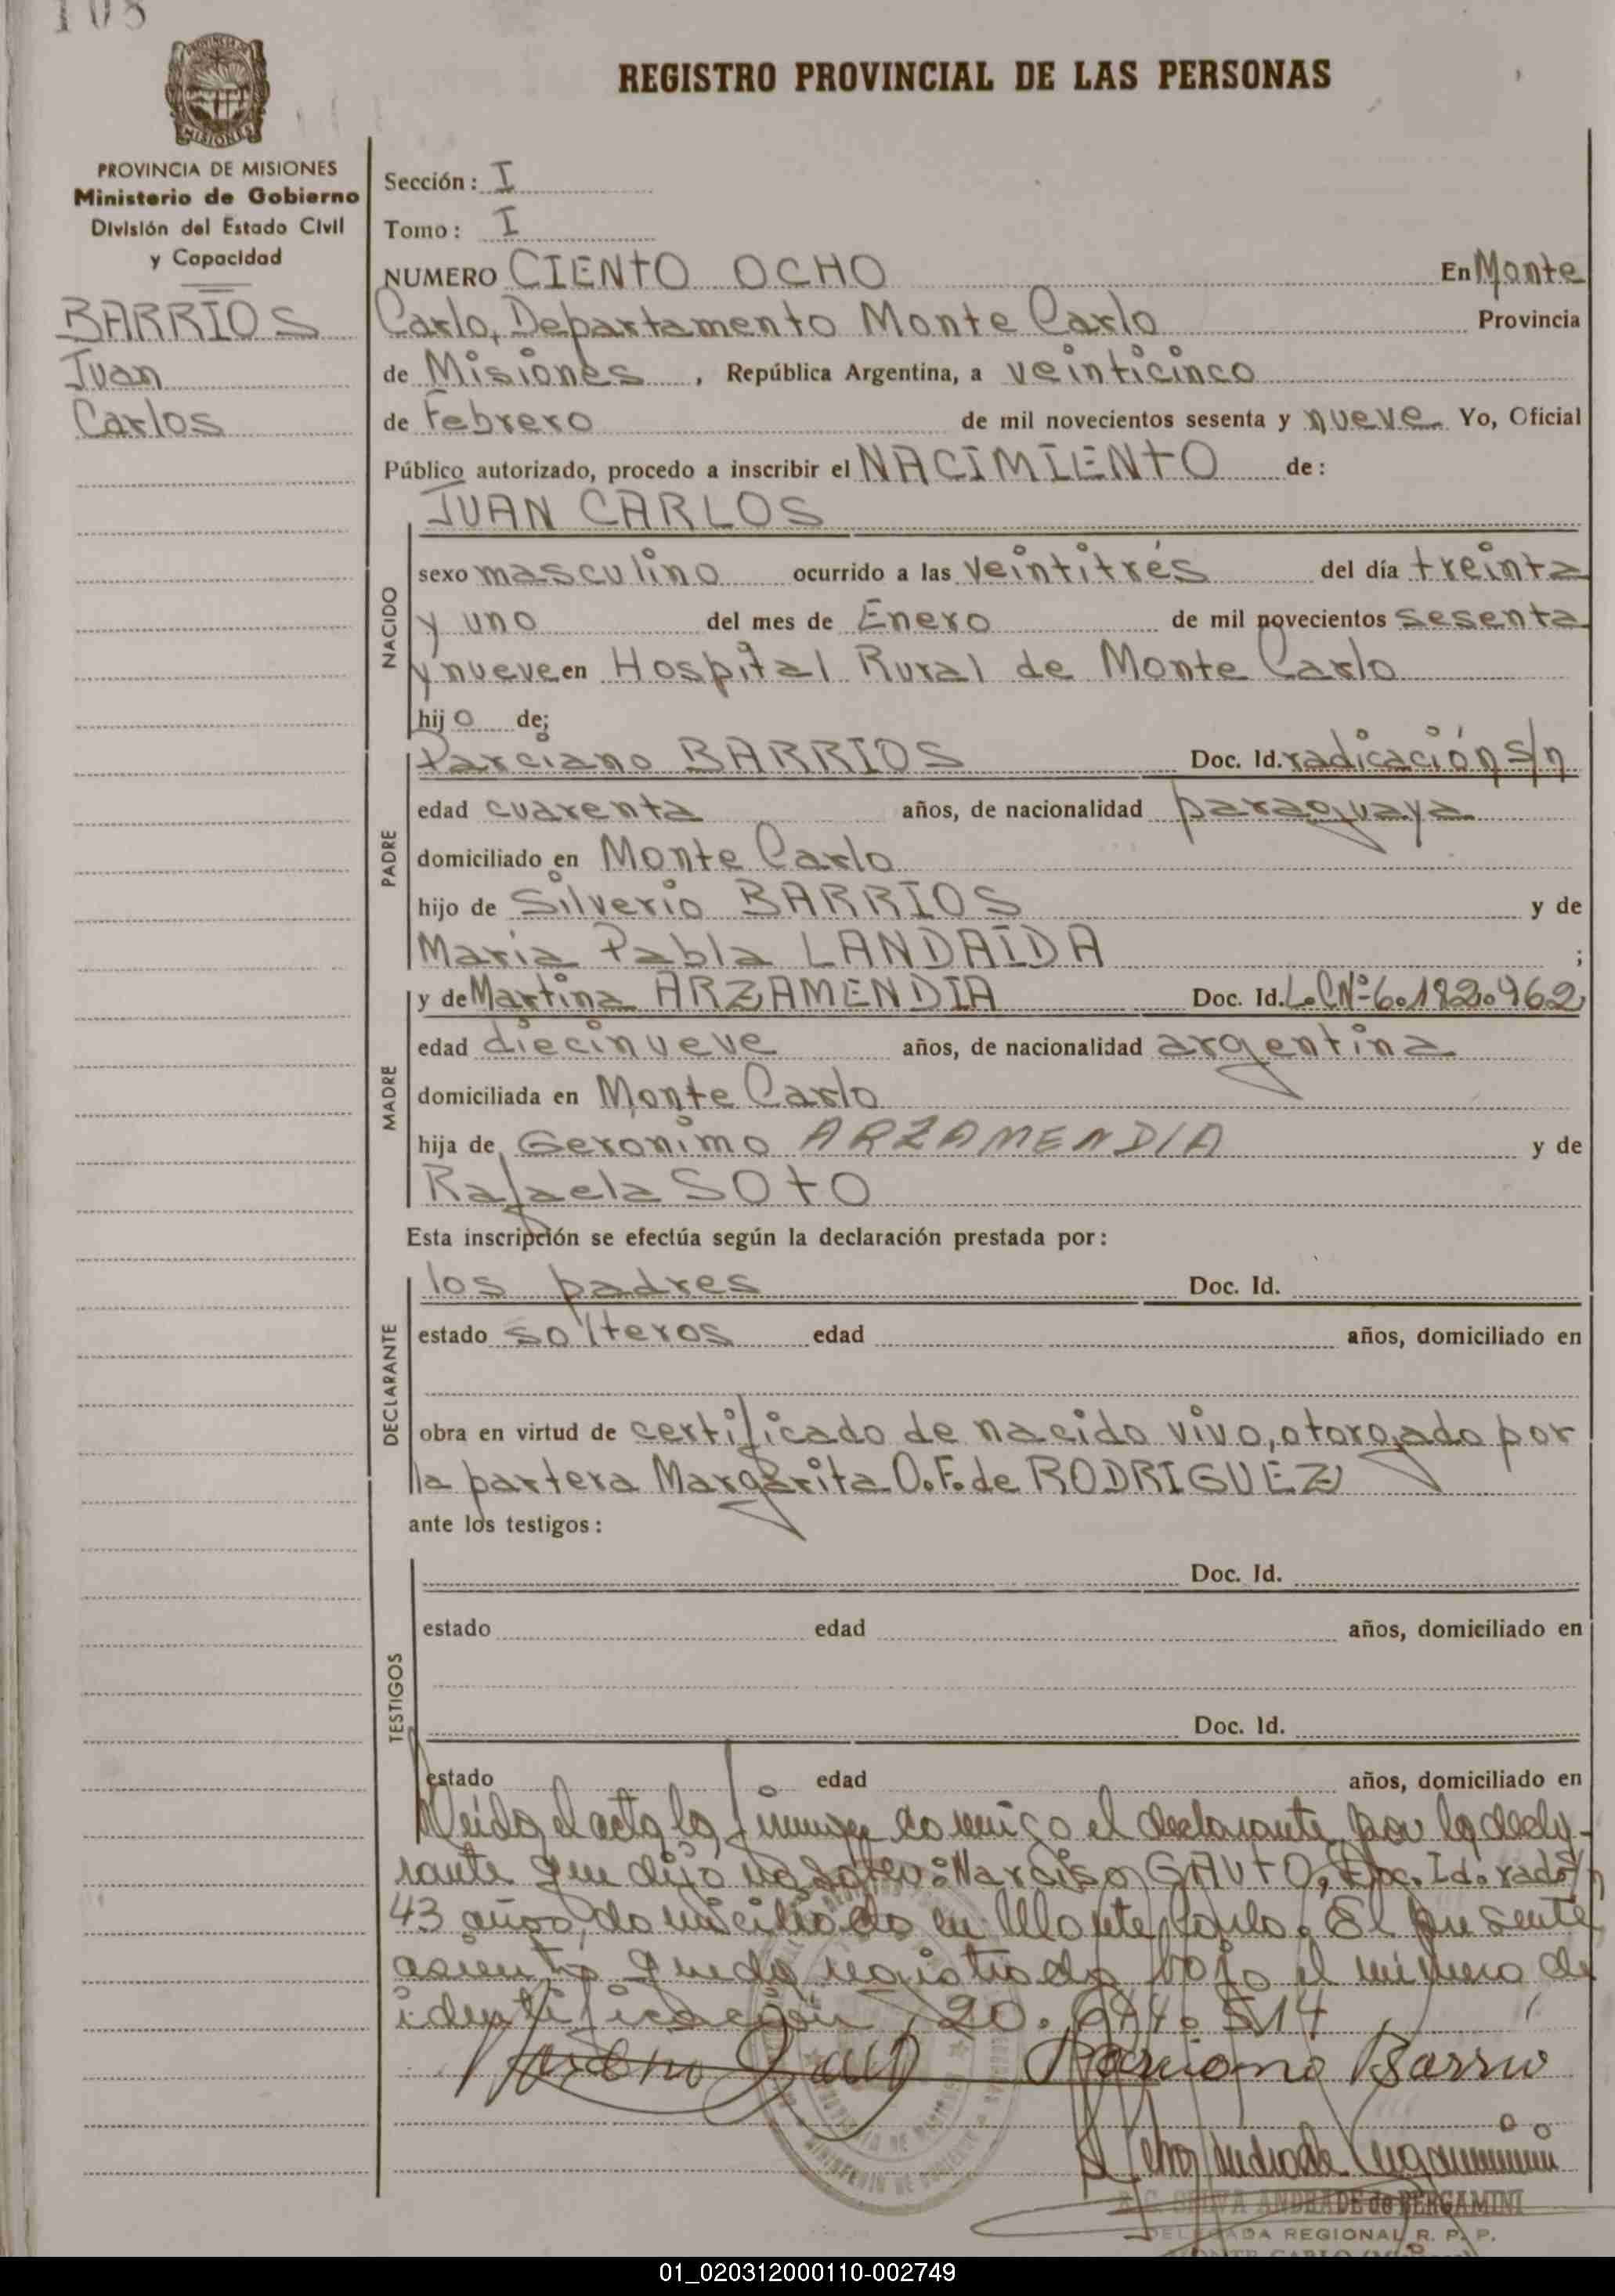 108
PROVINCIA DE MISIONES
Ministerio de Gobierno
División del Estado Civil
y Capacidad
BARRIOS
Juan
Carlos
REGISTRO PROVINCIAL DE LAS PERSONAS
Sección: I
Tomo: I
NUMERO CIENTO OCHO En Monte
Carlo, Departamento Monte Carlo Provincia
de Misiones, República Argentina, a veinticinco
de Febrero de mil novecientos sesenta y nueve Yo, Oficial
Público autorizado, procedo a inscribir el NACIMIENTO de:
JUAN CARLOS
NACIDO
sexo masculino ocurrido a las veintitrés del día treinta
y uno del mes de Enero de mil novecientos sesenta
y nueve en Hospital Rural de Monte Carlo
hijo de;
PADRE
Parciano BARRIOS Doc. Id. radicación s/n
edad cuarenta años, de nacionalidad paraguaya
domiciliado en Monte Carlo
hijo de Silverio BARRIOS y de
Maria Pabla LANDAIDA ;
MADRE
y de Martina ARZAMENDIA Doc. Id. L.C Nº 6.182.962
edad diecinueve años, de nacionalidad argentina
domiciliada en Monte Carlo
hija de Geronimo ARZAMENDIA y de
Rafaela SOTO
Esta inscripción se efectúa según la declaración prestada por:
DECLARANTE
los padres Doc. Id.
estado solteros edad años, domiciliado en
obra en virtud de certificado de nacido vivo, otorgado por
la partera Margarita O.F. de RODRIGUEZ
ante los testigos:
TESTIGOS
Doc. Id.
estado edad años, domiciliado en
Doc. Id.
estado edad años, domiciliado en
Leida el acta la firman conmigo el declarante, por la decla-
rante que dijo no saber: Narciso GAUTO, Doc. Id. rad. s/n
43 años, domiciliado en Monte Carlo. El presente
asiento queda registrado bajo el número de
identificación 20.644.514
Parciano Barrio
SELVA ANDRADE de BERGAMINI
DELEGADA REGIONAL R. P. P.
MONTE CARLO
01_020312000110-002749